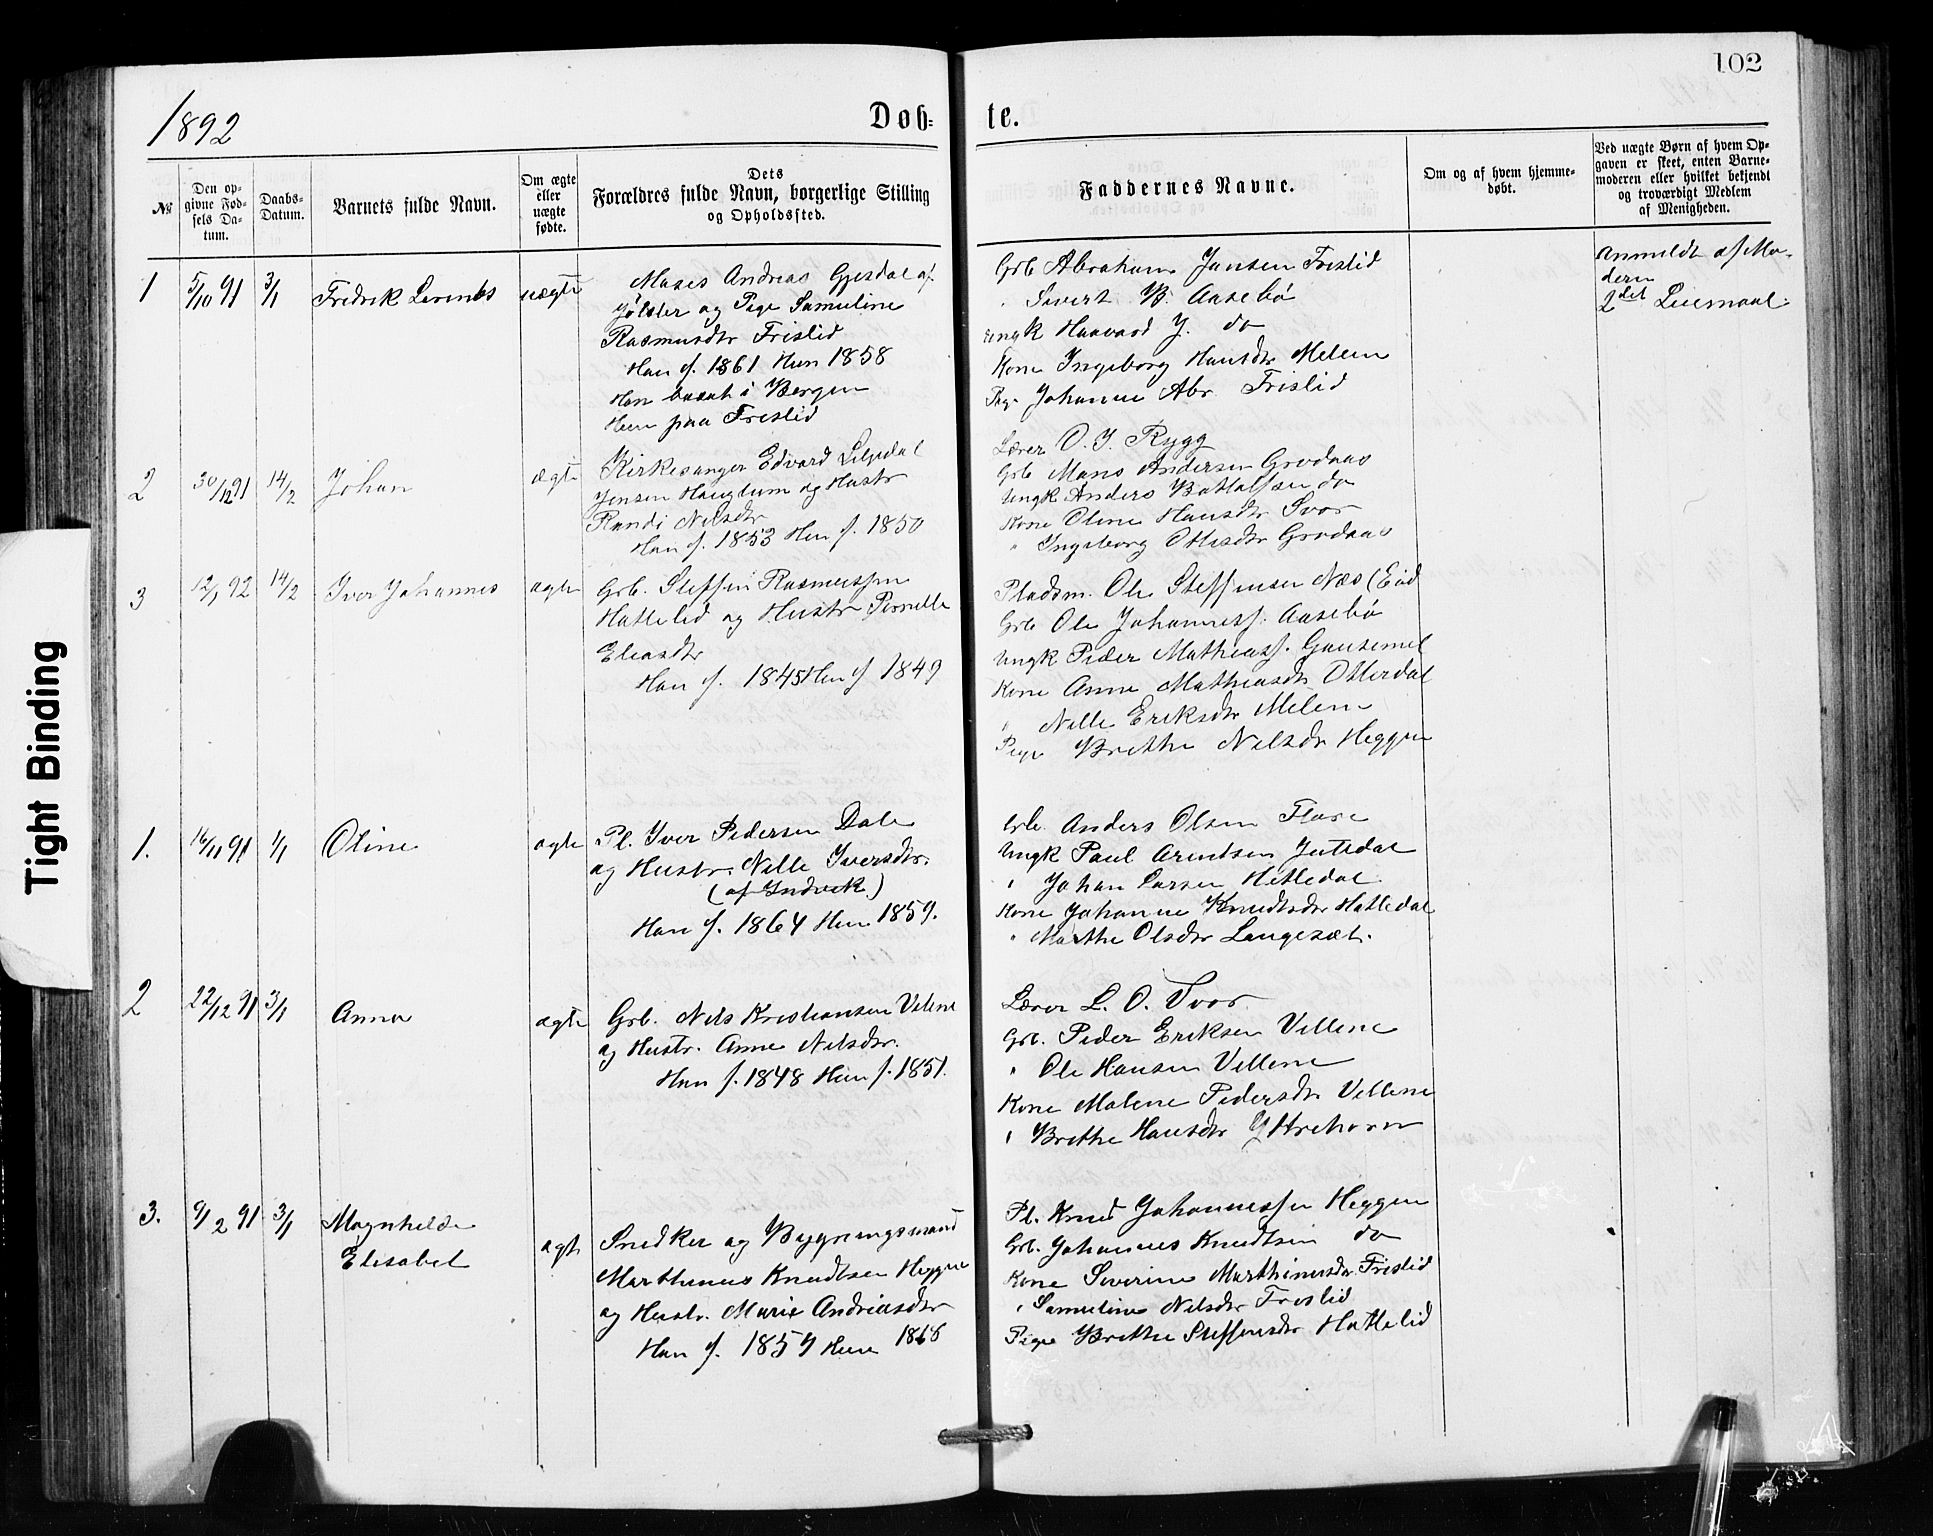 102
1892
Døb- te.
№
Den opgivne Fødsels Datum.
Daabs-Datum.
Barnets fulde Navn.
Om ægte eller uægte fødte.
Dets Forældres fulde Navn, borgerlige Stilling og Opholdssted.
Faddernes Navne.
Om og af hvem hjemmedøbt.
Ved uægte Børn af hvem Opgaven er skeet, enten Barnemoderen eller hvilket bekjendt og troværdigt Medlem af Menigheden.
1 5/10 91 3/1 Fredrik Lorents uægte
Moses Andreas Gjesdal af
Jølster og Pige Samueline
Rasmusdtr Frislid
Han f. 1861 Hun 1858
Han bosat i Bergen
Hun paa Frislid
Grb Abraham Jansen Frislid
" Sivert B. Aasebø
Ungk Haavard J. do
Kone Ingeborg Hansdtr Melem
Pige Johanne Abr. Frislid
Anmeldt af Mo-
deren
2det Leiermaal.
2 30/12 91 14/2 Johan ægte
Kirkesanger Edvard Liljedal
Jensen Haugtum og Hustr
Randi Nilsdtr
Han f. 1853 Hun f. 1850
Lærer O. J. Rygg
Grb Mons Andersen Grodaas
Ungk Anders Bottolfsen do
Kone Oline Hansdtr Svor
" Ingeborg Ottesdtr Grodaas
3 12/1 92 14/2 Iver Johannes ægte
Grb. Steffen Rasmussen
Hattelid og Hustr Pernelle
Eliasdtr
Han f. 1845 Hun f 1849
Pladsm. Ole Steffensen Næs (Eid
Grb Ole Johannesf. Aasebø
Ungk Peder Mathiasf. Gausemel
Kone Anne Mathiasdtr Otterdal
" Nille Eriksdtr Melem
Pige Brithe Nilsdr Heggen
1. 16/11 91 1/1 Oline ægte
Pl. Iver Pedersen Dale
og Hustr. Nille Iversdtr.
(af Indvik)
Han f. 1864 Hun 1859.
Grb Anders Olsen Flore
Ungk Paul Arentsen
" Johan Larsen Hetledal.
Kone Johanne Knudtsdtr Hatledal
" Marthe Olsdtr Langesæt.
2 22/12 91 3/1 Anna ægte
Grb. Nils Kristiansen Vilene
og Hustr. Anne Nilsdtr.
Han f. 1848 Hun f. 1851.
Lærer L. O. Svor
Grb. Peder Eriksen Villene
" Ole Hansen Villene
Kone Malene Pedersdtr Villene
" Brithe Hansdtr Yttrehorn
3. 9/12 91 3/1 Magnhilde ægt
Elisabet
Snedker og Bygningsmand
Marthinus Knudtsen Heggen
og Hustr. Marie Andreasdtr
Han f. 1857 Hun 1866
Pl. Knud Johannessen Heggen
Grb. Johannes Knudtsen do
Kone Severine Marthinusdtr Frislid
" Samueline Nilsdtr Frislid
Pige Brithe Steffensdtr Hattelid
Tight Binding